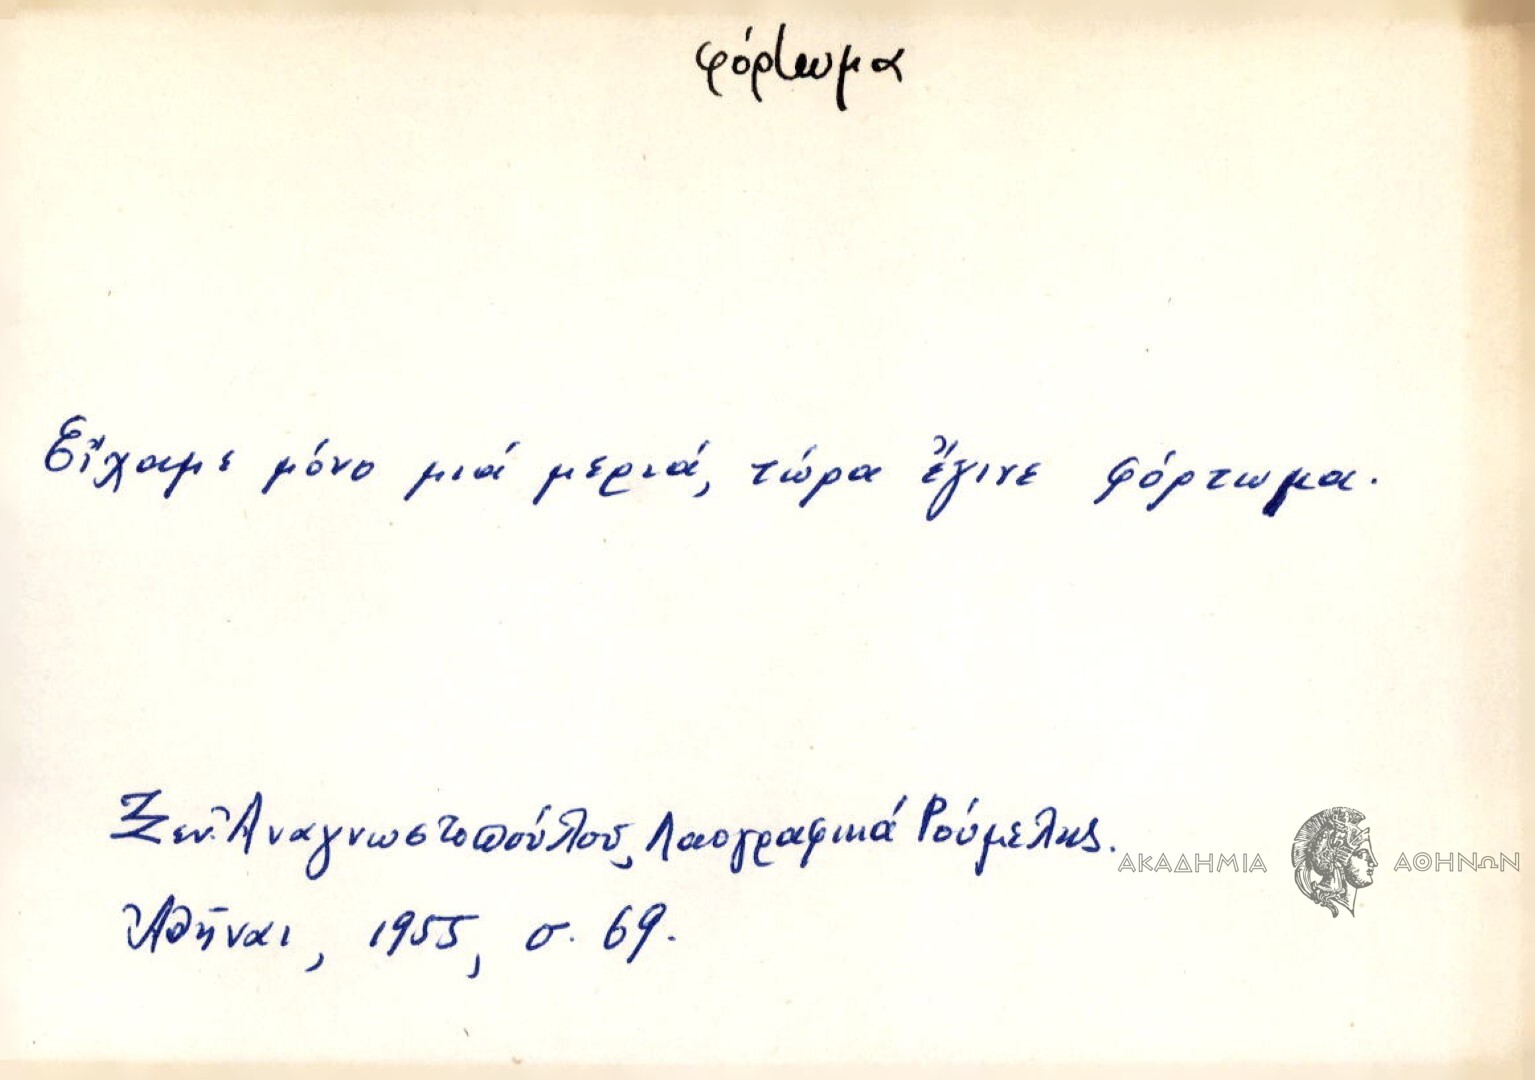 φόρτωμα
Εἴχαμε μόνο μιά μεριά, τώρα ἔγινε φόρτωμα.
Ξεν. Ἀναγνωστοπούλου, Λαογραφικά Ρούμελης.
ΑΚΑΔΗΜΙΑ ΑΘΗΝΩΝ
Ἀθῆναι, 1955, σ. 69.